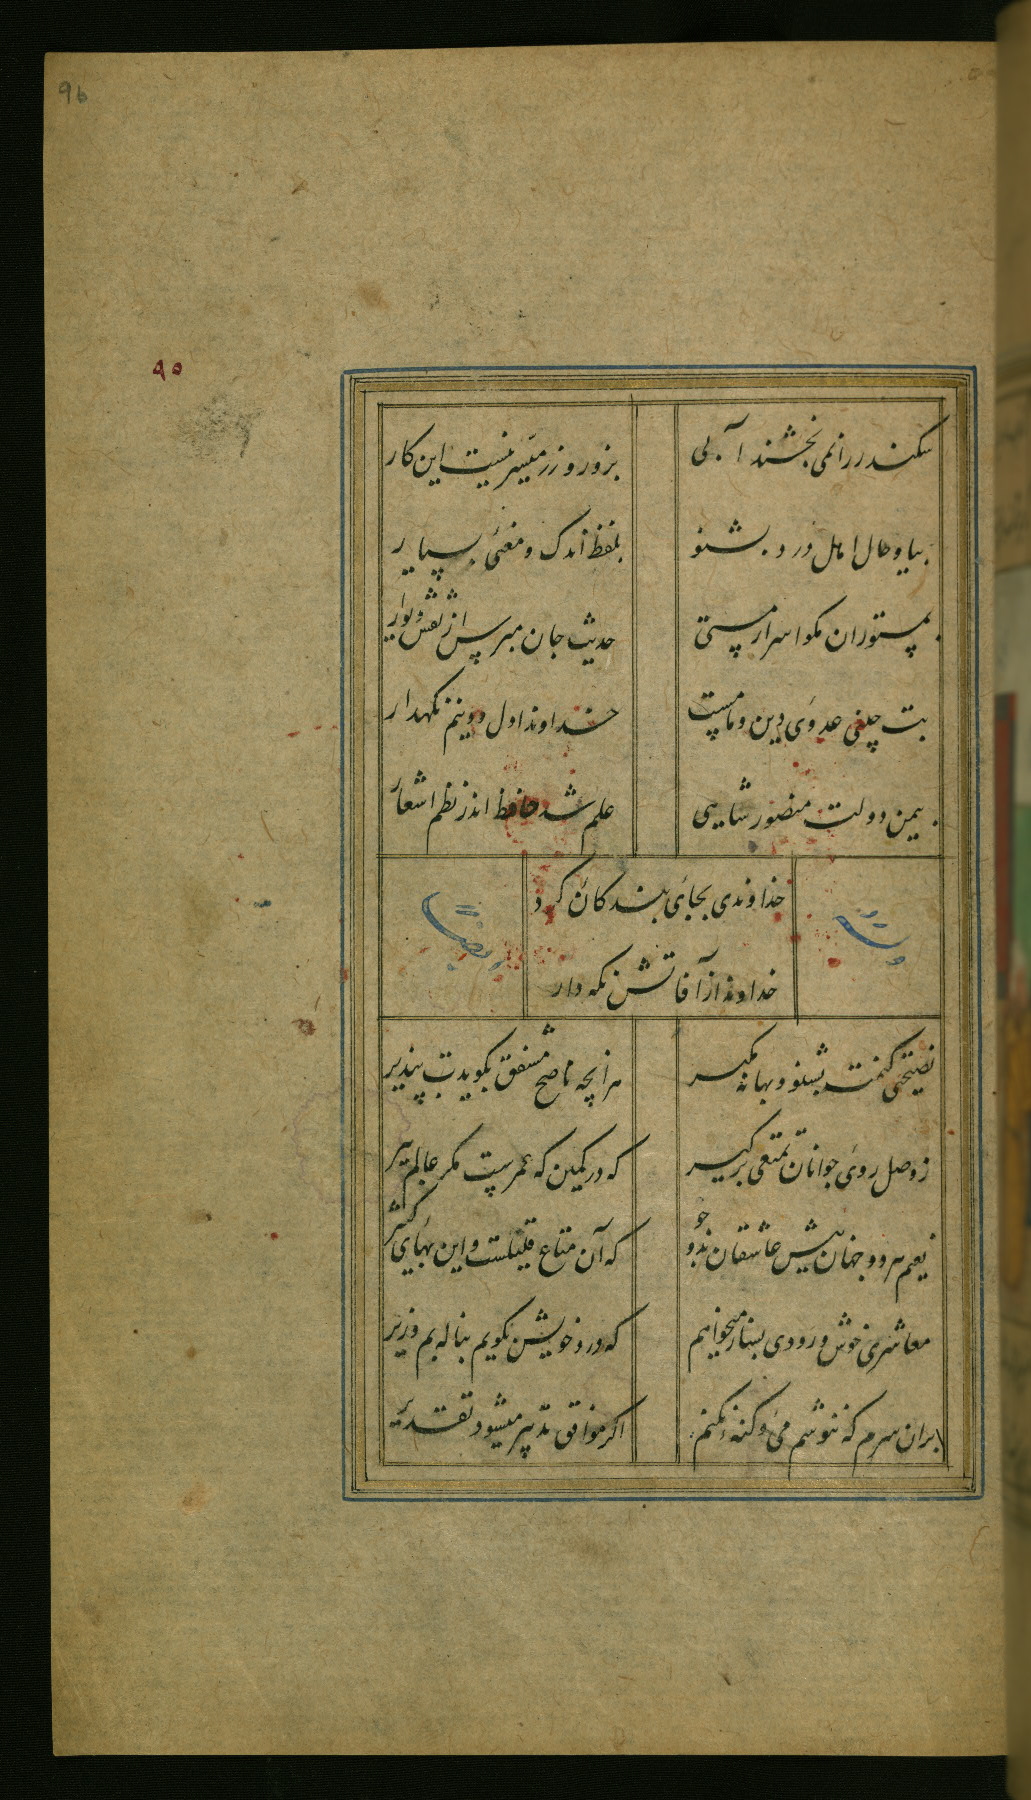 96
۹۵
سکندر را نمی بخشند آبی
بزور و زر میسر نیست این کار
بیا و حال اهل درد بشنو
بلفظ اندک و معنی بسیار
بمستوران مگو اسرار مستی
حدیث جان مپرس از نقش دیوار
بت چینی عدوی دین و ماست
خداوندا دل و دینم نگهدار
بیمن دولت منصور شاهی
علم شد حافظ اندر نظم اشعار
خداوندی بجای بندگان کرد
خداوندا ز آفاتش نگه دار
وله
ایضا
نصیحتی کنمت بشنو و بهانه مگیر
هرانچه ناصح مشفق بگویدت بپذیر
ز وصل روی جوانان تمتعی برگیر
که در کمین گه عمرست مکر عالم پیر
نعیم هر دو جهان پیش عاشقان بدو جو
که آن متاع قلیلست و این بهای کثیر
معاشری خوش و رودی بساز میخواهم
که درد خویش بگویم بناله بم و زیر
بران سرم که ننوشم می و گنه نکنم
اگر موافق تدبیر میشود تقدیر